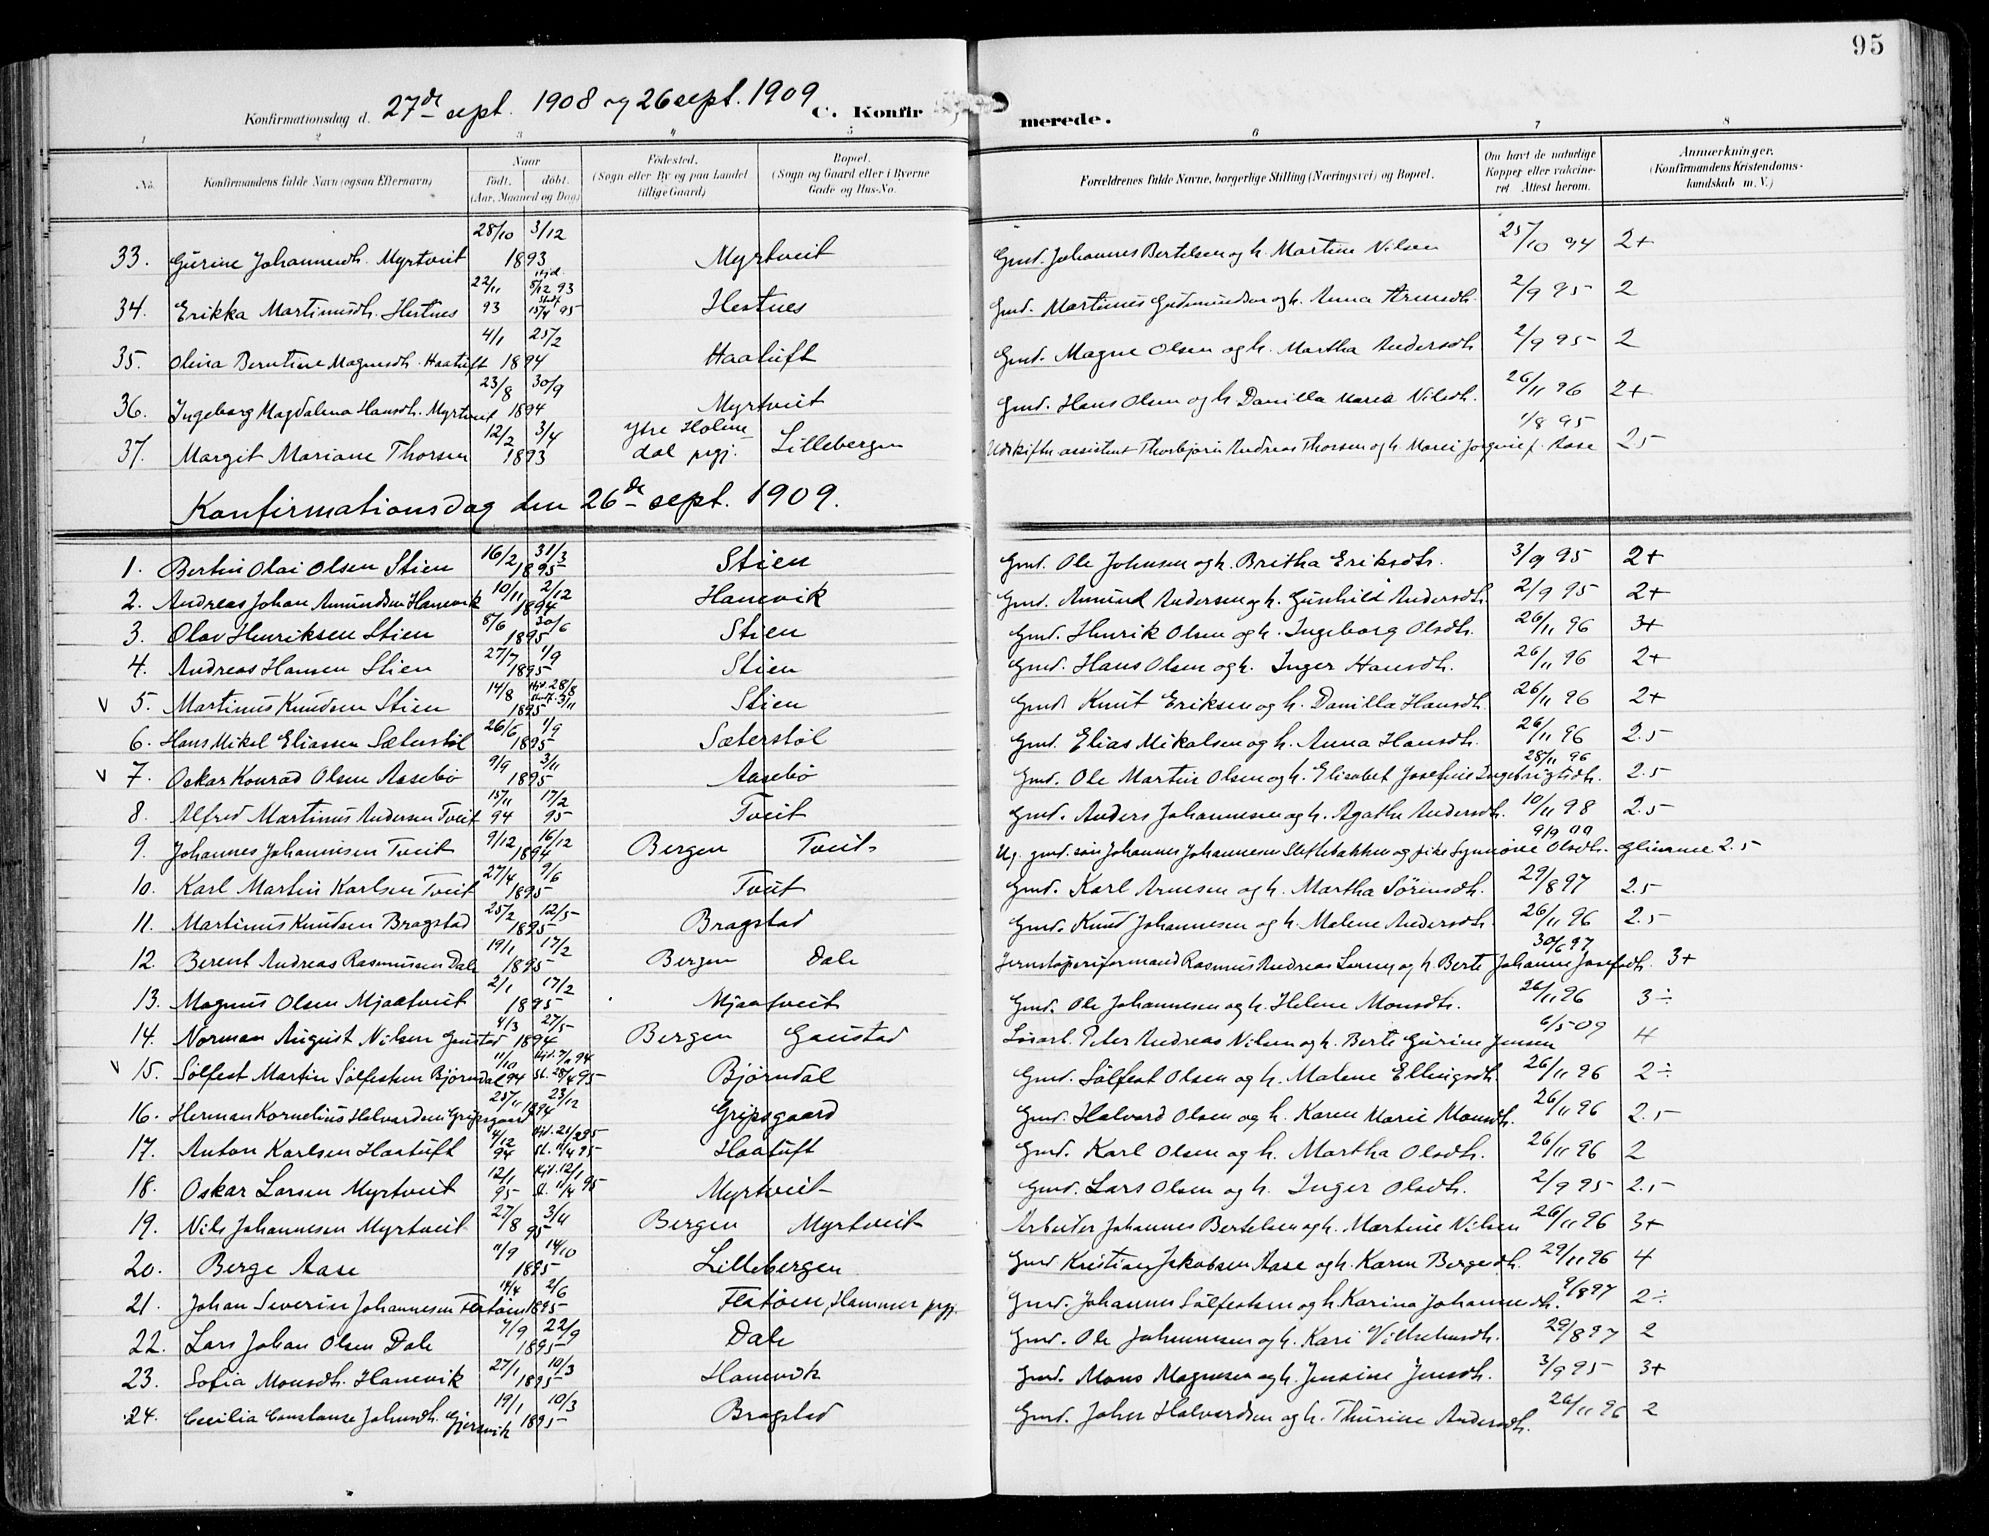 95
Konfirmationsdag d. 27de sept. 1908 og 26 sept. 1909 C. Konfirmerede.
1 2 3 4 5 6 7 8
No. Konfirmandens fulde Navn (ogsaa Efternavn) Naar født. døbt. (Aar, Maaned og Dag) Fødested. (Sogn eller By og paa Landet tillige Gaard) Bopæl. (Sogn og Gaard eller i Byerne Gade og Hus-No. Forældrenes fulde Navne, borgerlige Stilling (Næringsvei) og Bopæl. Om havt de naturlige Kopper eller vaccineret Attest herom. Anmærkninger. (Konfirmandens Kristendomskundskab m. V.)
33. Gurine Johannesdh. Myrtveit 28/10 3/12 1893 Myrtveit Gmd. Johannes Bertelsen og h. Martine Nilsen 25/10 94 2+
34. Erikka Martinusdh. Hestnes 22/11 93 hjd. 8/12 93 Stadf. 15/4 95 Hestnes Gmd. Martinus Gudmundsen og h. Anna Arnesdh. 2/9 95 2
35. Olina Berntine Magnesdh. Haatuft 4/1 25/2 1894 Haatuft Gmd. Magne Olsen og h. Martha Andersdh 2/9 95 2
36. Ingeborg Magdalena Hansdh. Myrtveit 23/8 30/9 1894 Myrtveit Gmd. Hans Olsen og h. Danilla Maria Nilsdh. 26/11 96 2+
37. Margit Mariane Thorsen 12/2 3/4 1893 Ytre Holmedal prgj. Lillebergen Udskiftn.assistent Thorbjørn Andreas Thorsen og h. Marei f. Aase 1/8 95 2.5
Konfirmationsdag den 26de sept. 1909.
1. Bertin Olai Olsen Stien 16/2 31/3 1895 Stien Gmd. Ole Johnsen og h. Britha Eriksdh. 3/9 95 2+
2. Andreas Johan Amundsen Hanevik 10/11 2/12 1894 Hanevik Gmd. Amund Andersen og h. Gunhild Andersdh. 2/9 95 2+
3. Olav Henriksen Stien 8/6 30/6 1895 Stien Gmd. Henrik Olsen og h. Ingeborg Olsdh. 26/11 96 3+
4. Andreas Hansen Stien 27/7 1/9 1895 Stien Gmd. Hans Olsen og h. Inger Hansdh. 26/11 96 2+
v 5. Martinus Knudsen Stien 14/8 Hjd. 28/8 Stadf. 3/11 1895 Stien Gmd. Knut Eriksen og h. Danilla Hansdh. 26/11 96 2+
6. Hans Mikal Eliassen Sæterstøl 26/6 1/9 1895 Sæterstøl Gmd. Elias Mikalsen og h. Anna Hansdh. 26/11 96 2.5
v 7. Oskar Konrad Olsen Aasebø 9/9 3/11 1895 Aasebø Gmd. Ole Martin Olsen og h. Elisabet Josefine Ingebrigtsdh. 28/11 96 2.5
8. Alfred Martinus Andersen Tveit 15/11 94 17/2 95 Tveit Gmd. Anders Johannesen og h. Agathe Andersdh. 10/11 98 2.5
9. Johannes Johannesen Tveit 9/12 16/12 1894 Bergen Tveit Ug. gmd. søn Johannes Johannesen Slethebakken og pike Synnøve Olsdh. 9/9 00 2.5
10. Karl Martin Karlsen Tveit 27/4 9/6 1895 Tveit Gmd. Karl Arnesen og h. Martha Sørensdh. 29/8 97 2.5
11. Martinus Knudsen Bragstad 25/2 12/5 1895 Bragstad Gmd. Knud Johannesen og h. Malene Andersdh. 26/11 96 2.5
12. Berent Andreas Rasmussen Dale 19/1 17/2 1895 Bergen Dale Jernstøperiformand Rasmus Andreas Larsen og h. Berte Johanne Josefsdh. 30/6 97 3+
13. Magnus Olsen Mjaatveit 2/1 17/2 1895 Mjaatveit Gmd. Ole Johannesen og h. Helene Monsdh. 26/11 96 3÷
14. Norman August Nilsen Gaustad 4/3 27/5 1894 Bergen Gaustad Løsarb. Peter Andreas Nilsen og h. Berte Gurine Jensen 6/5 09 4
v 15. Sølfest Martin Sølfestsen Bjørndal 11/10 94 Hjd. 7/11 94 St. 28/4 95 Bjørndal Gmd. Sølfest Olsen og h. Malene Ellingsdh. 26/11 96 2÷
16. Herman Kornelius Halvardsen Gripsgaard 25/11 23/12 1894 Gripsgaard Gmd. Halvard Olsen og h. Karen Marie Monsdh. 26/11 96 2.5
17. Anton Karlsen Haatuft 4/12 94 Hjd. 21/2 95 St. 11/4 95 Haatuft Gmd. Karl Olsen og h. Martha Olsdh. 26/11 96 2
18. Oskar Larsen Myrtveit 12/1 95 Hjd. 12/1 St. 11/4 95 Myrtveit Gmd. Lars Olsen og h. Inger Olsdh. 2/9 95 2.5
19. Nils Johannesen Myrtveit 27/8 3/4 95 Bergen Myrtveit Arbeider Johannes Bertelsen og h. Martine Nilsen 26/11 96 3+
20. Berge Aase 11/9 14/10 1895 Lillebergen Gmd. Kristian Jakobsen Aase og h. Karen Bergesdh. 29/11 96 4
21. Johan Severin Johannesen Flatøen 14/4 2/6 1895 Flatøen, Hammer prgj. Gmd. Johannes Sølfestsen og h. Karina Johannesdh. 9/8 97 2÷
22. Lars Johan Olsen Dale 7/9 22/9 1895 Dale Gmd. Ole Johannesen og h. Kari Vilhelmsdh. 29/8 97 2
23. Sofia Monsdh. Hanevik 27/1 10/3 1895 Hanevik Gmd. Mons Magnesen og h. Jensine Jensdh. 3/9 95 3+
24. Cecilia Constanse Johnsdh. Gjersvik 19/1 10/3 1895 Bragstad Gmd. Johan Halvardsen og h. Thurine Andersdh. 26/11 96 2